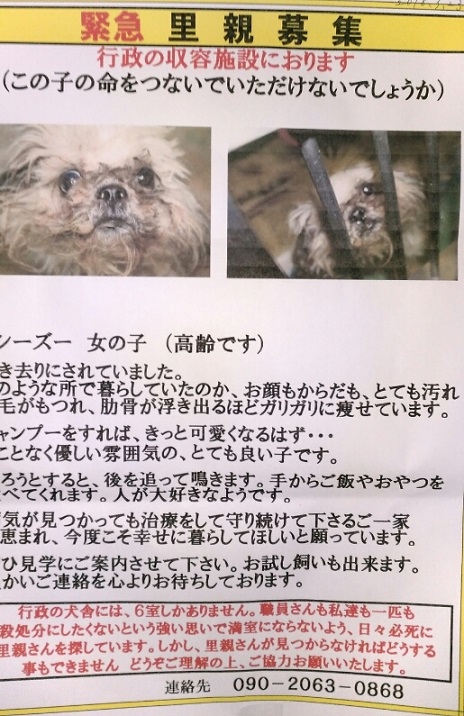 緊急 里親募集
行政の収容施設におります
(この子の命をつないでいただけないでしょうか)
シーズー 女の子 (高齢です)
き去りにされていました。
のような所で暮らしていたのか、お顔もからだも、とても汚れ
毛がもつれ、肋骨が浮き出るほどガリガリに痩せています。
ャンプーをすれば、きっと可愛くなるはず・・・
ことなく優しい雰囲気の、とても良い子です。
ろうとすると、後を追って鳴きます。手からご飯やおやつを
べてくれます。人が大好きなようです。
気が見つかっても治療をして守り続けて下さるご一家
恵まれ、今度こそ幸せに暮らしてほしいと願っています。
ひ見学にご案内させて下さい。お試し飼いも出来ます。
かいご連絡を心よりお待ちしております。
行政の犬舎には、6室しかありません。職員さんも私達も一匹も
殺処分にしたくないという強い思いで満室にならないよう、日々必死に
里親さんを探しています。しかし、里親さんが見つからなければどうする
事もできません どうぞご理解の上、ご協力お願いいたします。
連絡先 090-2063-0868